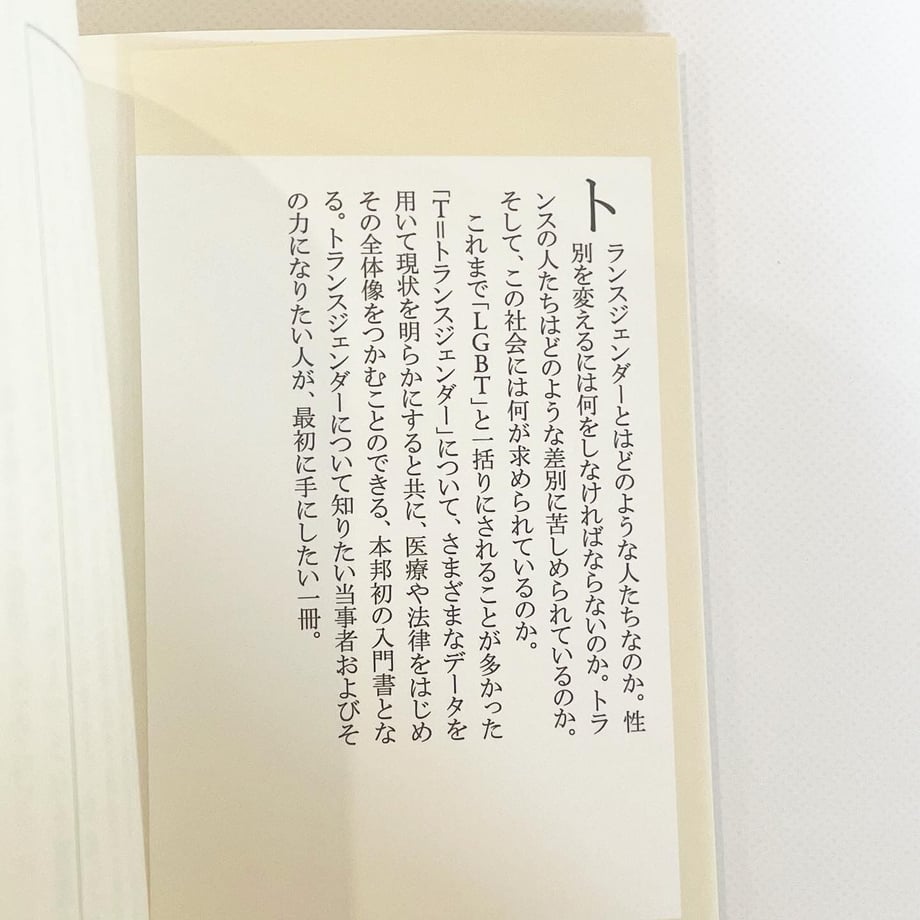 トランスジェンダーとはどのような人たちなのか。性
別を変えるには何をしなければならないのか。トラ
ンスの人たちはどのような差別に苦しめられているのか。
そして、この社会には何が求められているのか。
これまで「LGBT」と一括りにされることが多かった
「T=トランスジェンダー」について、さまざまなデータを
用いて現状を明らかにすると共に、医療や法律をはじめ
その全体像をつかむことのできる、本邦初の入門書とな
る。トランスジェンダーについて知りたい当事者およびそ
の力になりたい人が、最初に手にしたい一冊。